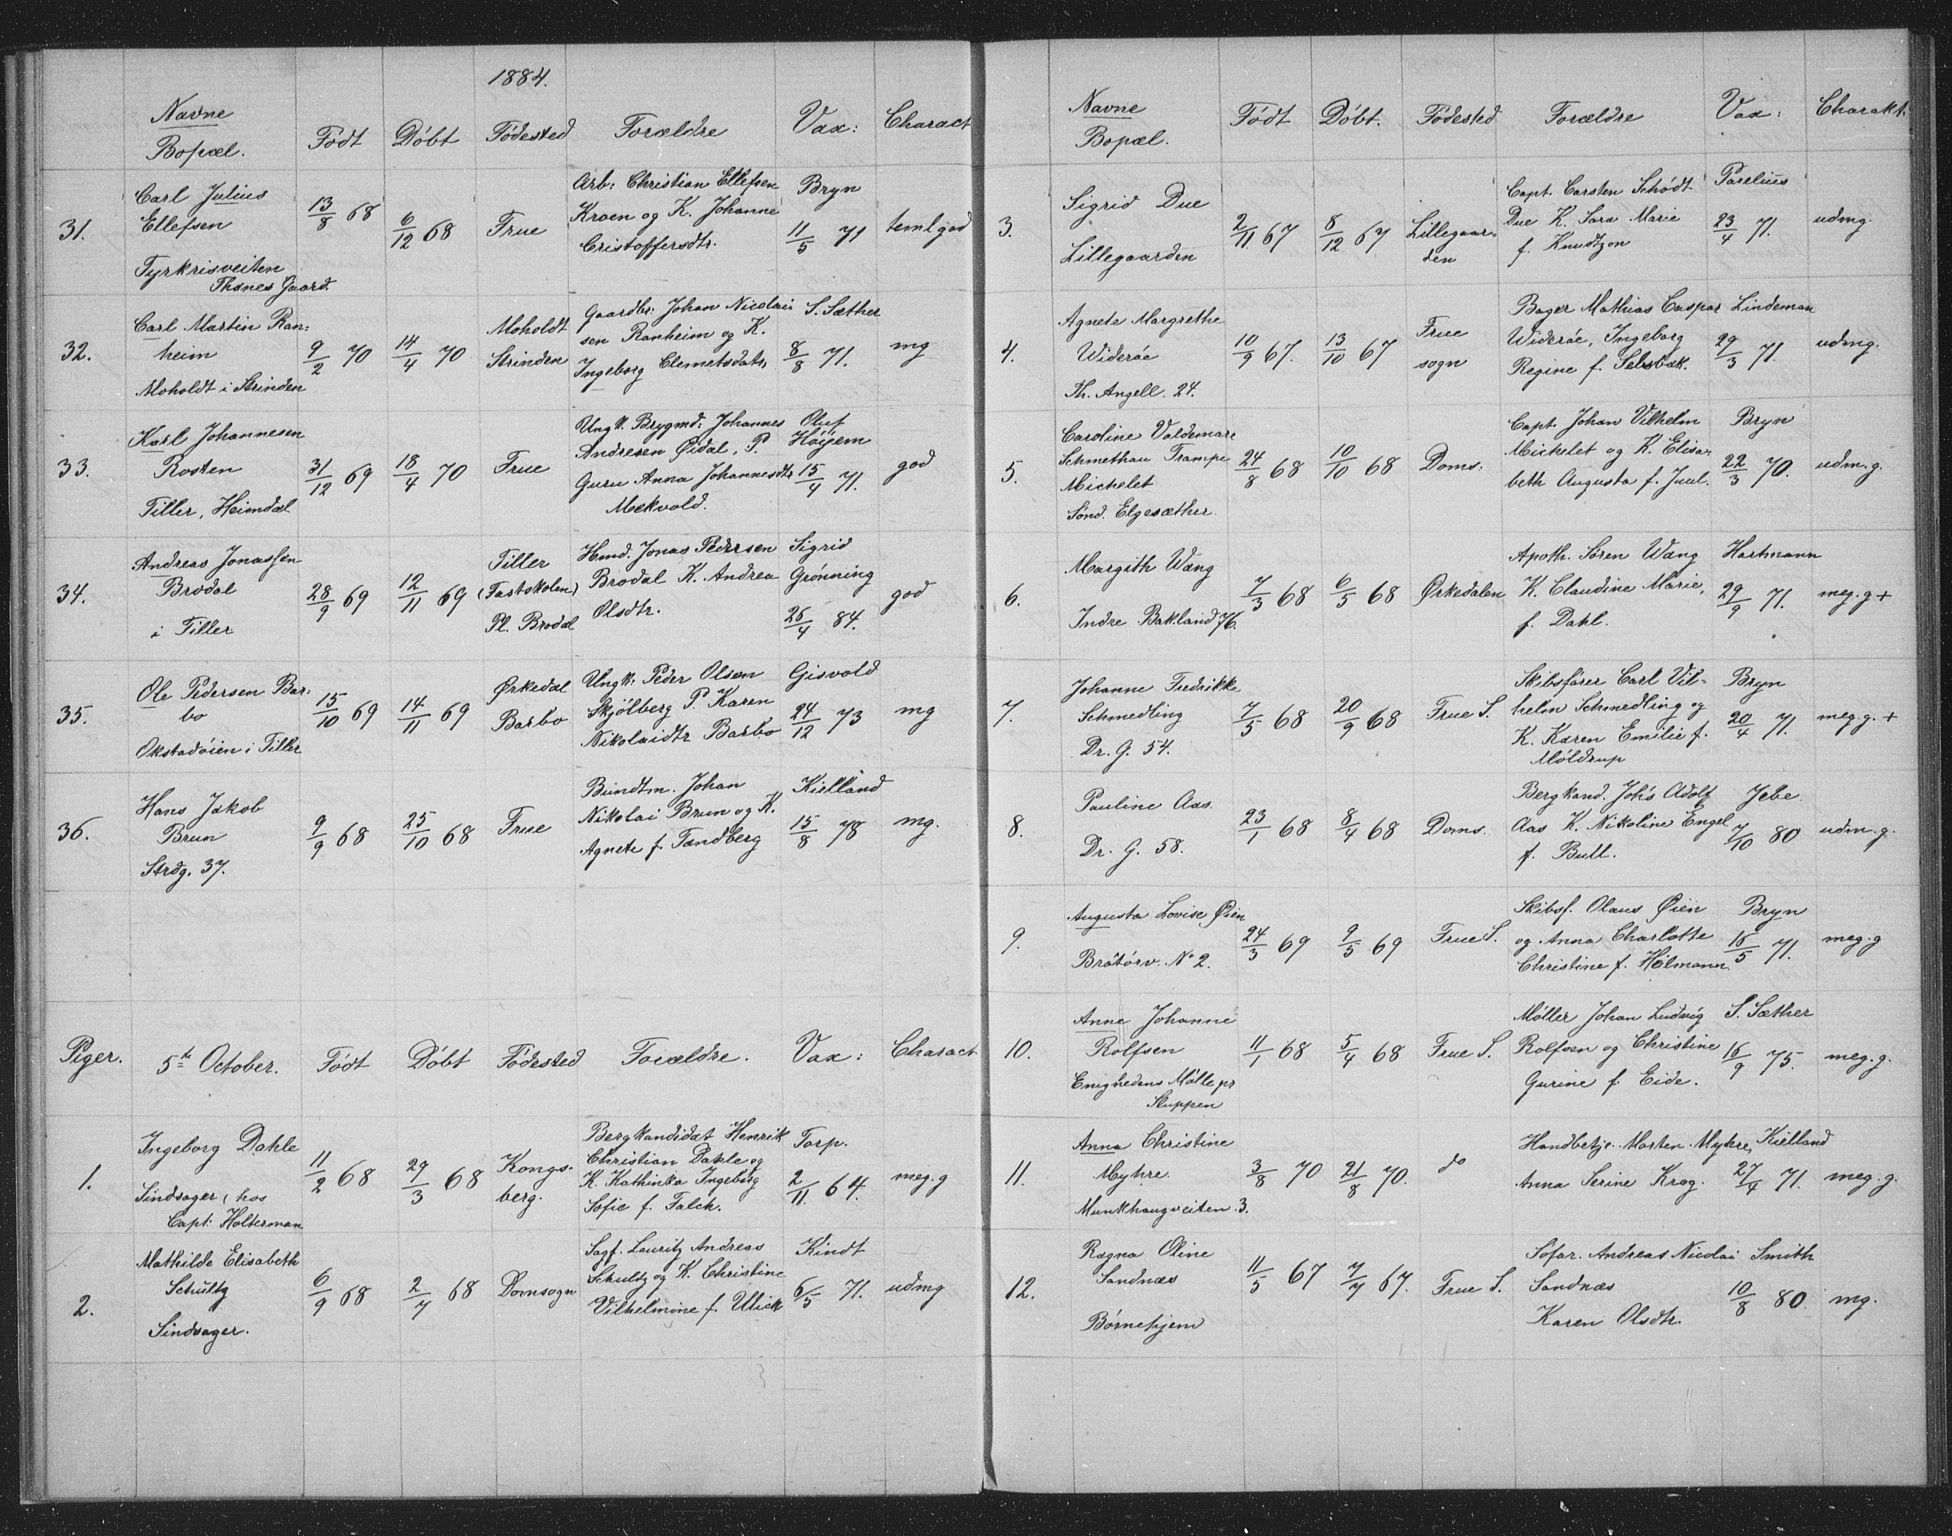 1884.
Navne
Bopæl. Født Döbt Födested Forældre Vax: Charact
31. Carl Julius
Ellefsen
Tyrkrisveiten
Thones Gaard. 13/8 68 6/12 68 Frue Arb: Christian Ellefsen
Kroen og K. Johanne
Cristoffersdtr. Bryn
11/5 71 teml god
32. Carl Martin Ran:
heim
Moholdt i Strinden 9/2 70 14/4 70 Moholdt
Strinden Gaardbr: Johan Nicolai
sen Ranheim og K.
Ingeborg Clemetsdatr, S. Sæther
8/8 71. mg
33. Karl Johannesen
Rosten
Tiller, Heimdal 31/12 69 18/4 70 Frue Ungk. Brygmd. Johannes
Andresen Øidal, P.
Guru Anna Johannesdtr
Mekvold. Oluf
Höyem
15/4 71. god
34. Andreas Jonassen
Brodal
i Tiller 28/9 69 12/11 69 Tiller
(Fastskolen)
Pl. Brodal Hmd. Jonas Pedersen
Brodal K. Andrea
Olsdtr. Sigrid
Grönning
26/4 84. god
35. Ole Pedersen Bar:
bo
Okstadöien i Tiller 15/10 69 14/11 69 Ørkedal
Barbo Ungk: Peder Olsen
Skjölberg P. Karen
Nikolaidtr Barbo Gisvold
24/12 73 mg
36. Hans Jakob
Brun
Strdg. 37. 9/9 68 25/10 68 Frue Bundtm. Johan
Nikolai Brun og K.
Agnete f. Tandberg Kielland
15/8 78 mg.
Piger. 5te October. Födt Döbt Födested Forældre. Vax: Charact
1. Ingeborg Dahle
Sindsager, hos
Capt. Holterman 11/2 68 29/3 68 Kongs-
berg. Bergkandidat Henrik
Christian Dahle og
K. Kathinka Ingeborg
Sofie f. Falch. Torp.
2/11 64. meg. g
2. Mathilde Elisabeth
Schultz
Sindsager. 6/9 68 2/7 68 Domsogn Sagf. Lauritz Andreas
Schultz og K. Christine
Vilhelmine f. Ulich Kindt
6/5 71. udmg
Navne
Bopæl. Födt Döbt. Födested Forældre Vax: Charakt.
3. Sigrid Due
Lillegaarden 2/11 67 8/12 67 Lillegaar-
den Capt. Carsten Schödt
Due K. Sara Marie
f. Knudtzon Parelius
23/4 71. udmg
4. Agnete Margrethe
Wideröe
Th. Angell. 24. 10/9 67. 13/10 67 Frue
sogn Bager Mathias Caspar
Wideröe, Ingeborg
Regine f. Selsbak. Lindeman
29/3 71. udmg.
5. Caroline Valdemare
Schmethau Trampe
Michelet
Sönd. Elgesæther. 24/8 68 10/10 68 Doms: Capt. Johan Vilhelm
Michelet og K. Elisa-
beth Augusta f. Juul. Bryn
22/3 70. udm. g.
6. Margith Wang
Indre Bakland 76. 7/3 68 6/5 68 Ørkedalen Apoth. Sören Wang
K. Claudine Marie,
f. Dahl. Hartmann
29/9 71. meg. g +
7. Johanne Fredrikke
Schmedling
Dr. G. 54. 7/5 68 20/9 68 Frue S. Skibsförer Carl Vil-
helm Schmedling og
K. Karen Emilie f.
Möldrup Bryn
20/4 71. meg. g. +
8. Pauline Aas.
Dr. G. 58. 23/1 68 8/4 68 Doms. Bergkand. Johs Adolf
Aas K. Nikoline Engel
f. Bull. Jebe.
7/10 80 udm. g.
9. Augusta Lovise Øien
Bratörv. No 2. 24/3 69 9/5 69 Frue S. Skibsf. Olaus Øien
og Anna Charlotte
Christine f. Holmann. Bryn
15/5 71. meg. g
10. Anne Johanne
Rolfsen
Enighedens Mölle pr
Sluppen 11/1 68 5/4 68 Frue S. Möller Johan Ludvig
Rolfsen og Christine
Gurine f. Eide. S. Sæther
16/9 75. meg. g.
11. Anna Christine
Myhre.
Munkhaugveiten. 3. 3/8 70 21/8 70. do Handbetj. Morten Myhre,
Anna Serine Krog. Kielland
27/4 71. meg. g.
12. Ragna Oline
Sandnæs
Börnehjem 11/5 67 7/7 67. Frue S. Sofar. Andreas Nicolai
Sandnæs
Karen Olsdtr. Smith
10/8 80. mg.